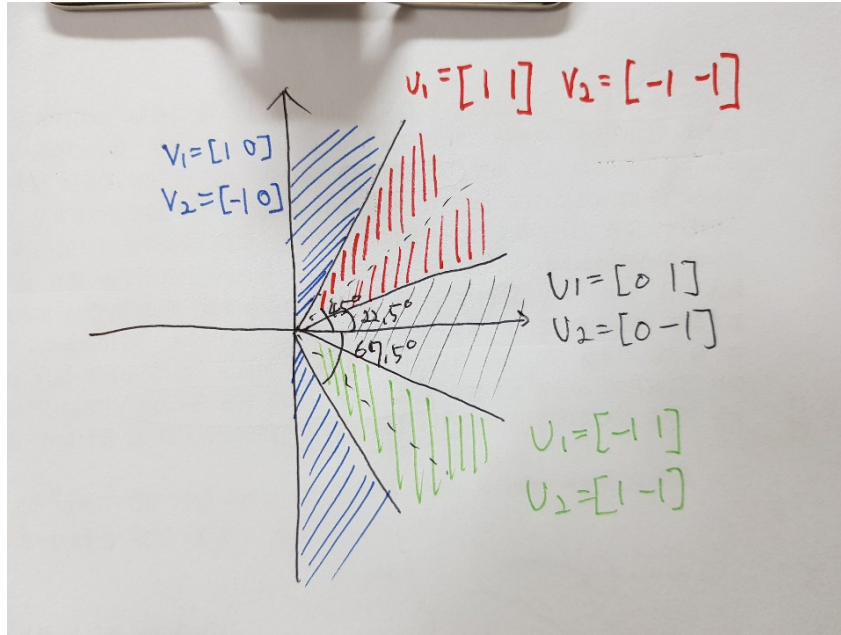 υ₁=[1 1] V₂=[-1 -1]
V₁=[1 0]
V₂=[-1 0]
45° 22.5°
67.5°
υ1=[0 1]
υ₂=[0 -1]
υ₁=[-1 1]
υ₂=[1 -1]